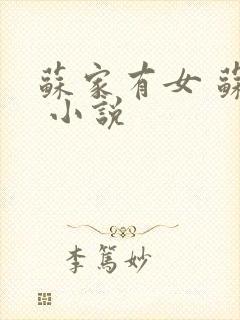 蘇家有女 蘇
小說
李篤妙